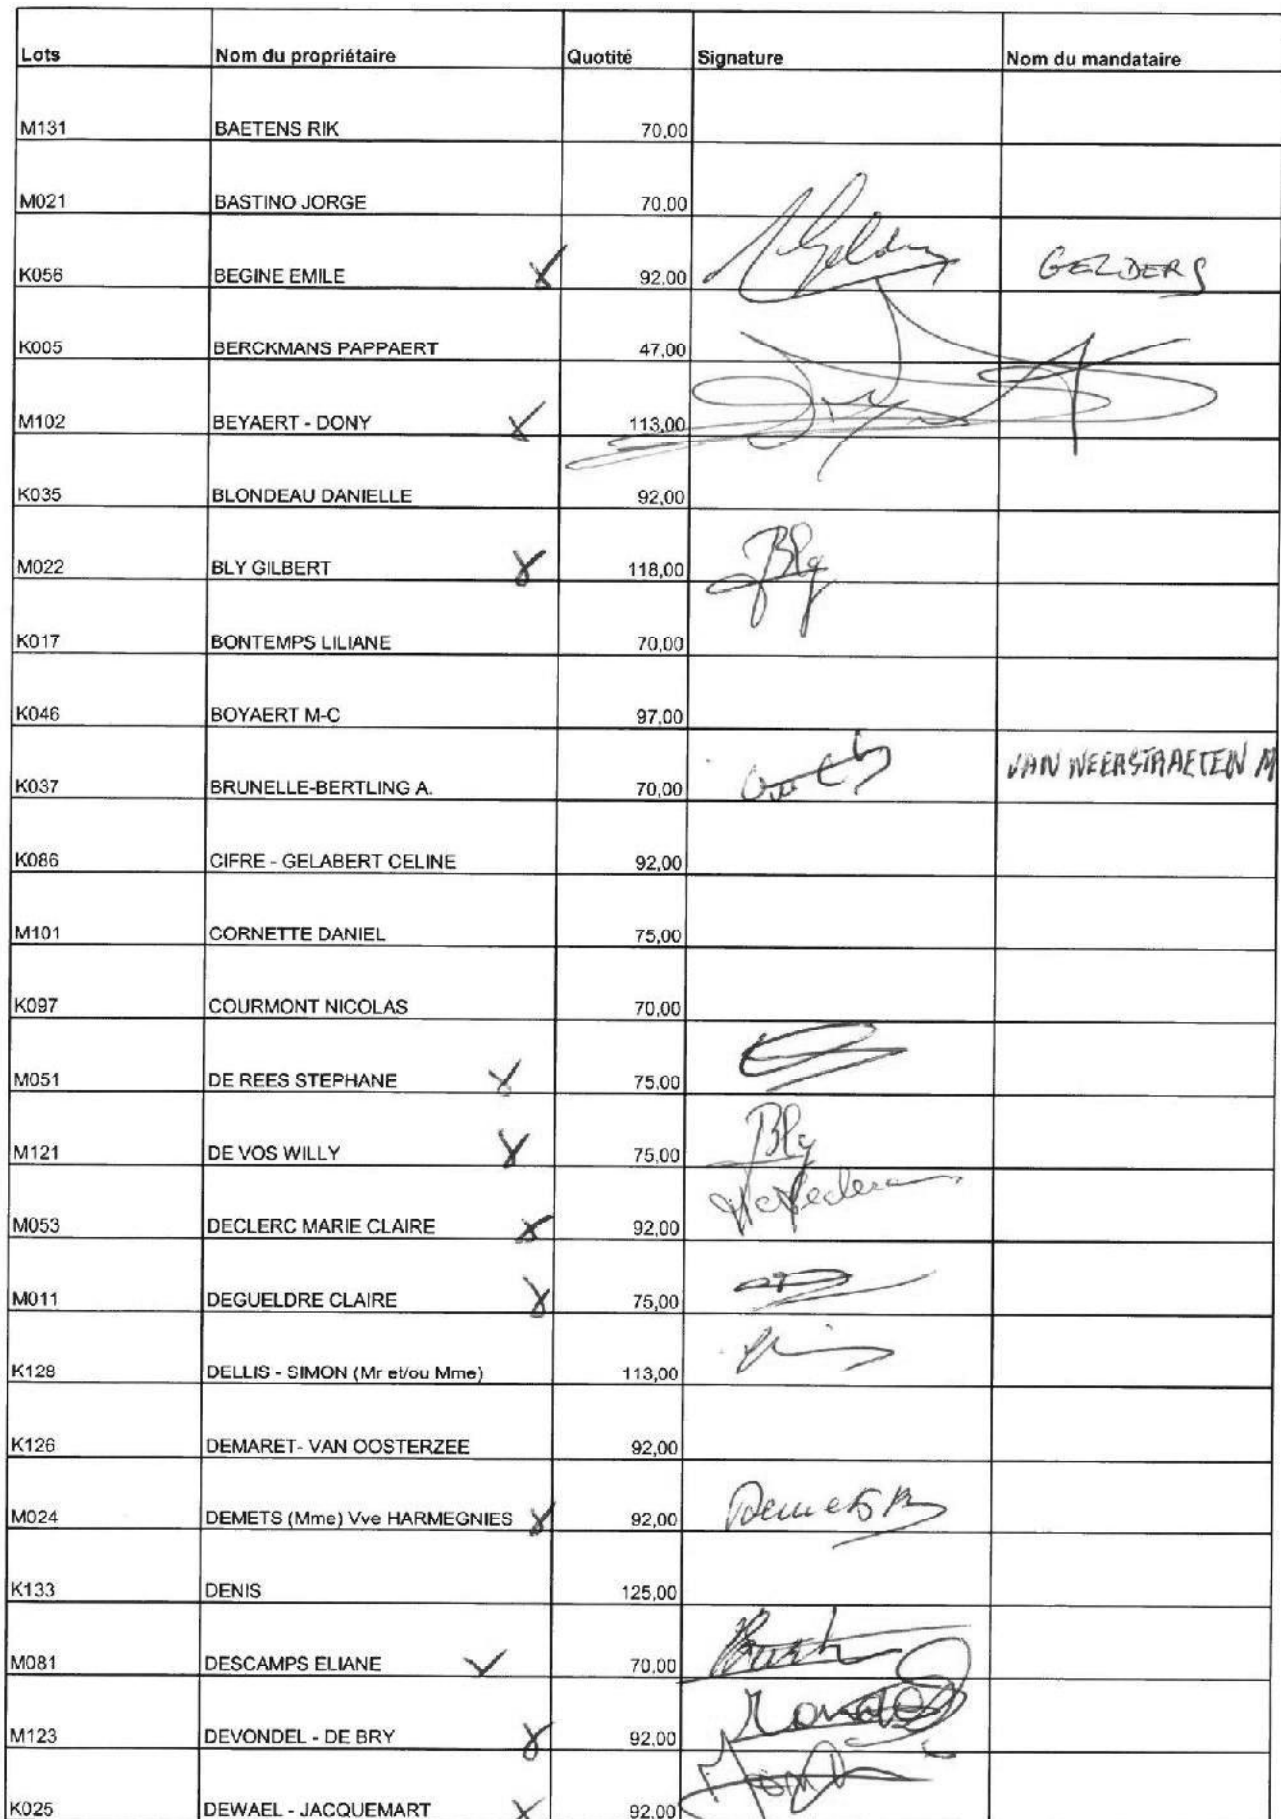 Lots Nom du propriétaire Quotité Signature Nom du mandataire
M131 BAETENS RIK 70,00
M021 BASTINO JORGE 70,00
K056 BEGINE EMILE 92,00 GELDERS
K005 BERCKMANS PAPPAERT 47,00
M102 BEYAERT - DONY 113,00
K035 BLONDEAU DANIELLE 92,00
M022 BLY GILBERT 118,00 Bly
K017 BONTEMPS LILIANE 70,00
K046 BOYAERT M-C 97,00
K037 BRUNELLE-BERTLING A. 70,00 VAN WEERSTRAETEN M
K086 CIFRE - GELABERT CELINE 92,00
M101 CORNETTE DANIEL 75,00
K097 COURMONT NICOLAS 70,00
M051 DE REES STEPHANE 75,00
M121 DE VOS WILLY 75,00 Bly
M053 DECLERC MARIE CLAIRE 92,00
M011 DEGUELDRE CLAIRE 75,00
K128 DELLIS - SIMON (Mr et/ou Mme) 113,00
K126 DEMARET- VAN OOSTERZEE 92,00
M024 DEMETS (Mme) Vve HARMEGNIES 92,00
K133 DENIS 125,00
M081 DESCAMPS ELIANE 70,00
M123 DEVONDEL - DE BRY 92,00
K025 DEWAEL - JACQUEMART 92,00